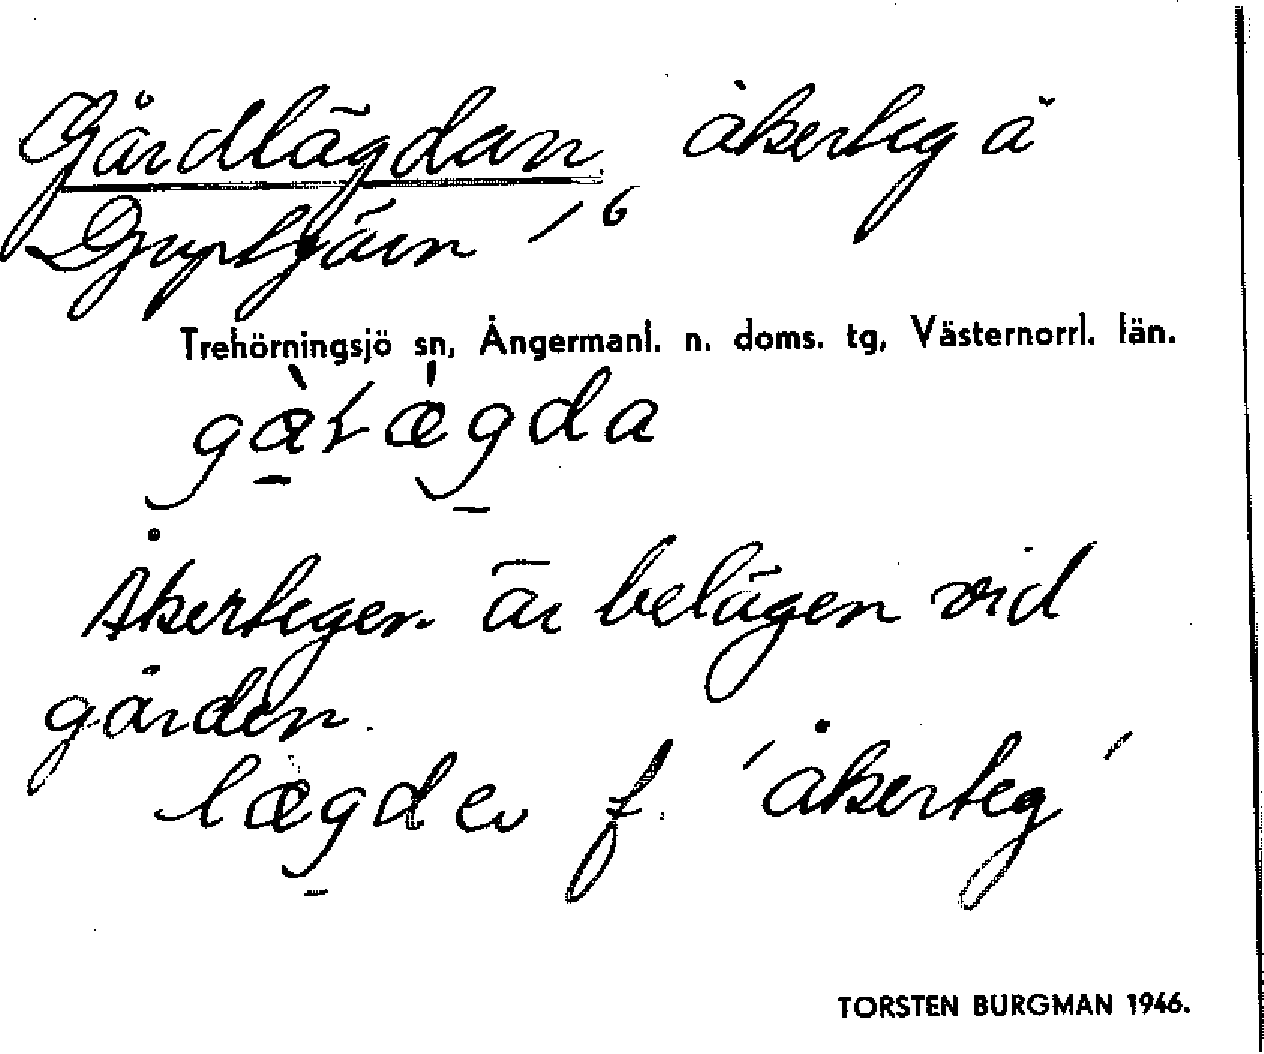 Gårdlägdan, åkerteg å
Djuptjärn 1/6
Trehörningsjö sn, Ångermanl. n. doms. tg, Västernorrl. län.
Åkertegen är belägen vid
gården.
f. 'åkerteg'
TORSTEN BURGMAN 1946.